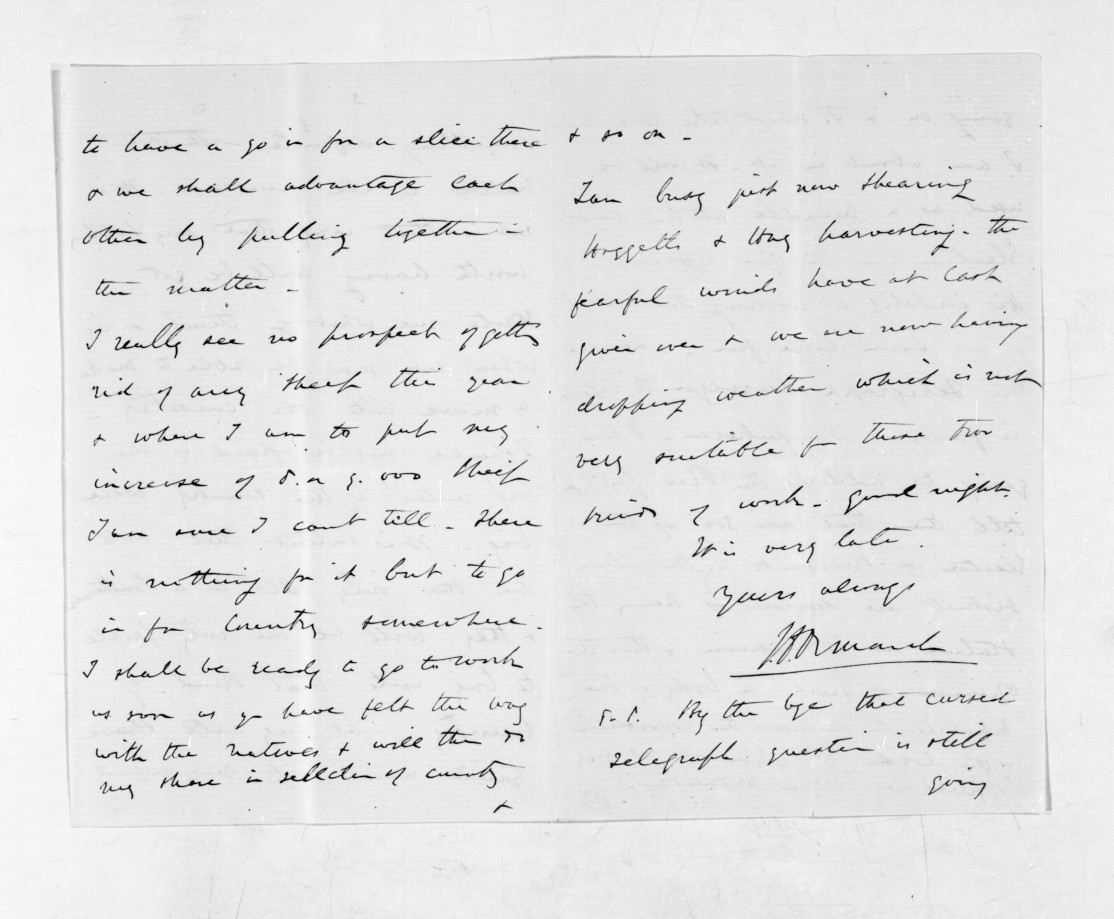 to have a go in for a slice there
& we shall advantage each
other by pulling together in
the matter -
I really see no prospect of getting
rid of any sheep this year
& where I am to put my
increase of 8. or 9.000 sheep
I am sure I cant tell - there
is nothing for it but to go
in for country somewhere.
I shall be ready to go to work
as soon as you have felt the way
with the natives & will then do
my share in sellection of country
&
& so on -
I am busy just now shearing
Hoggetts & Hay harvesting - the
fearful winds have at last
given over & we are now having
dropping weather which is not
very suitable for these two
kinds of work - good night.
It is very late.
Yours always
J.D. Ormond
P.S. By the bye that cursed
telegraph question is still
going